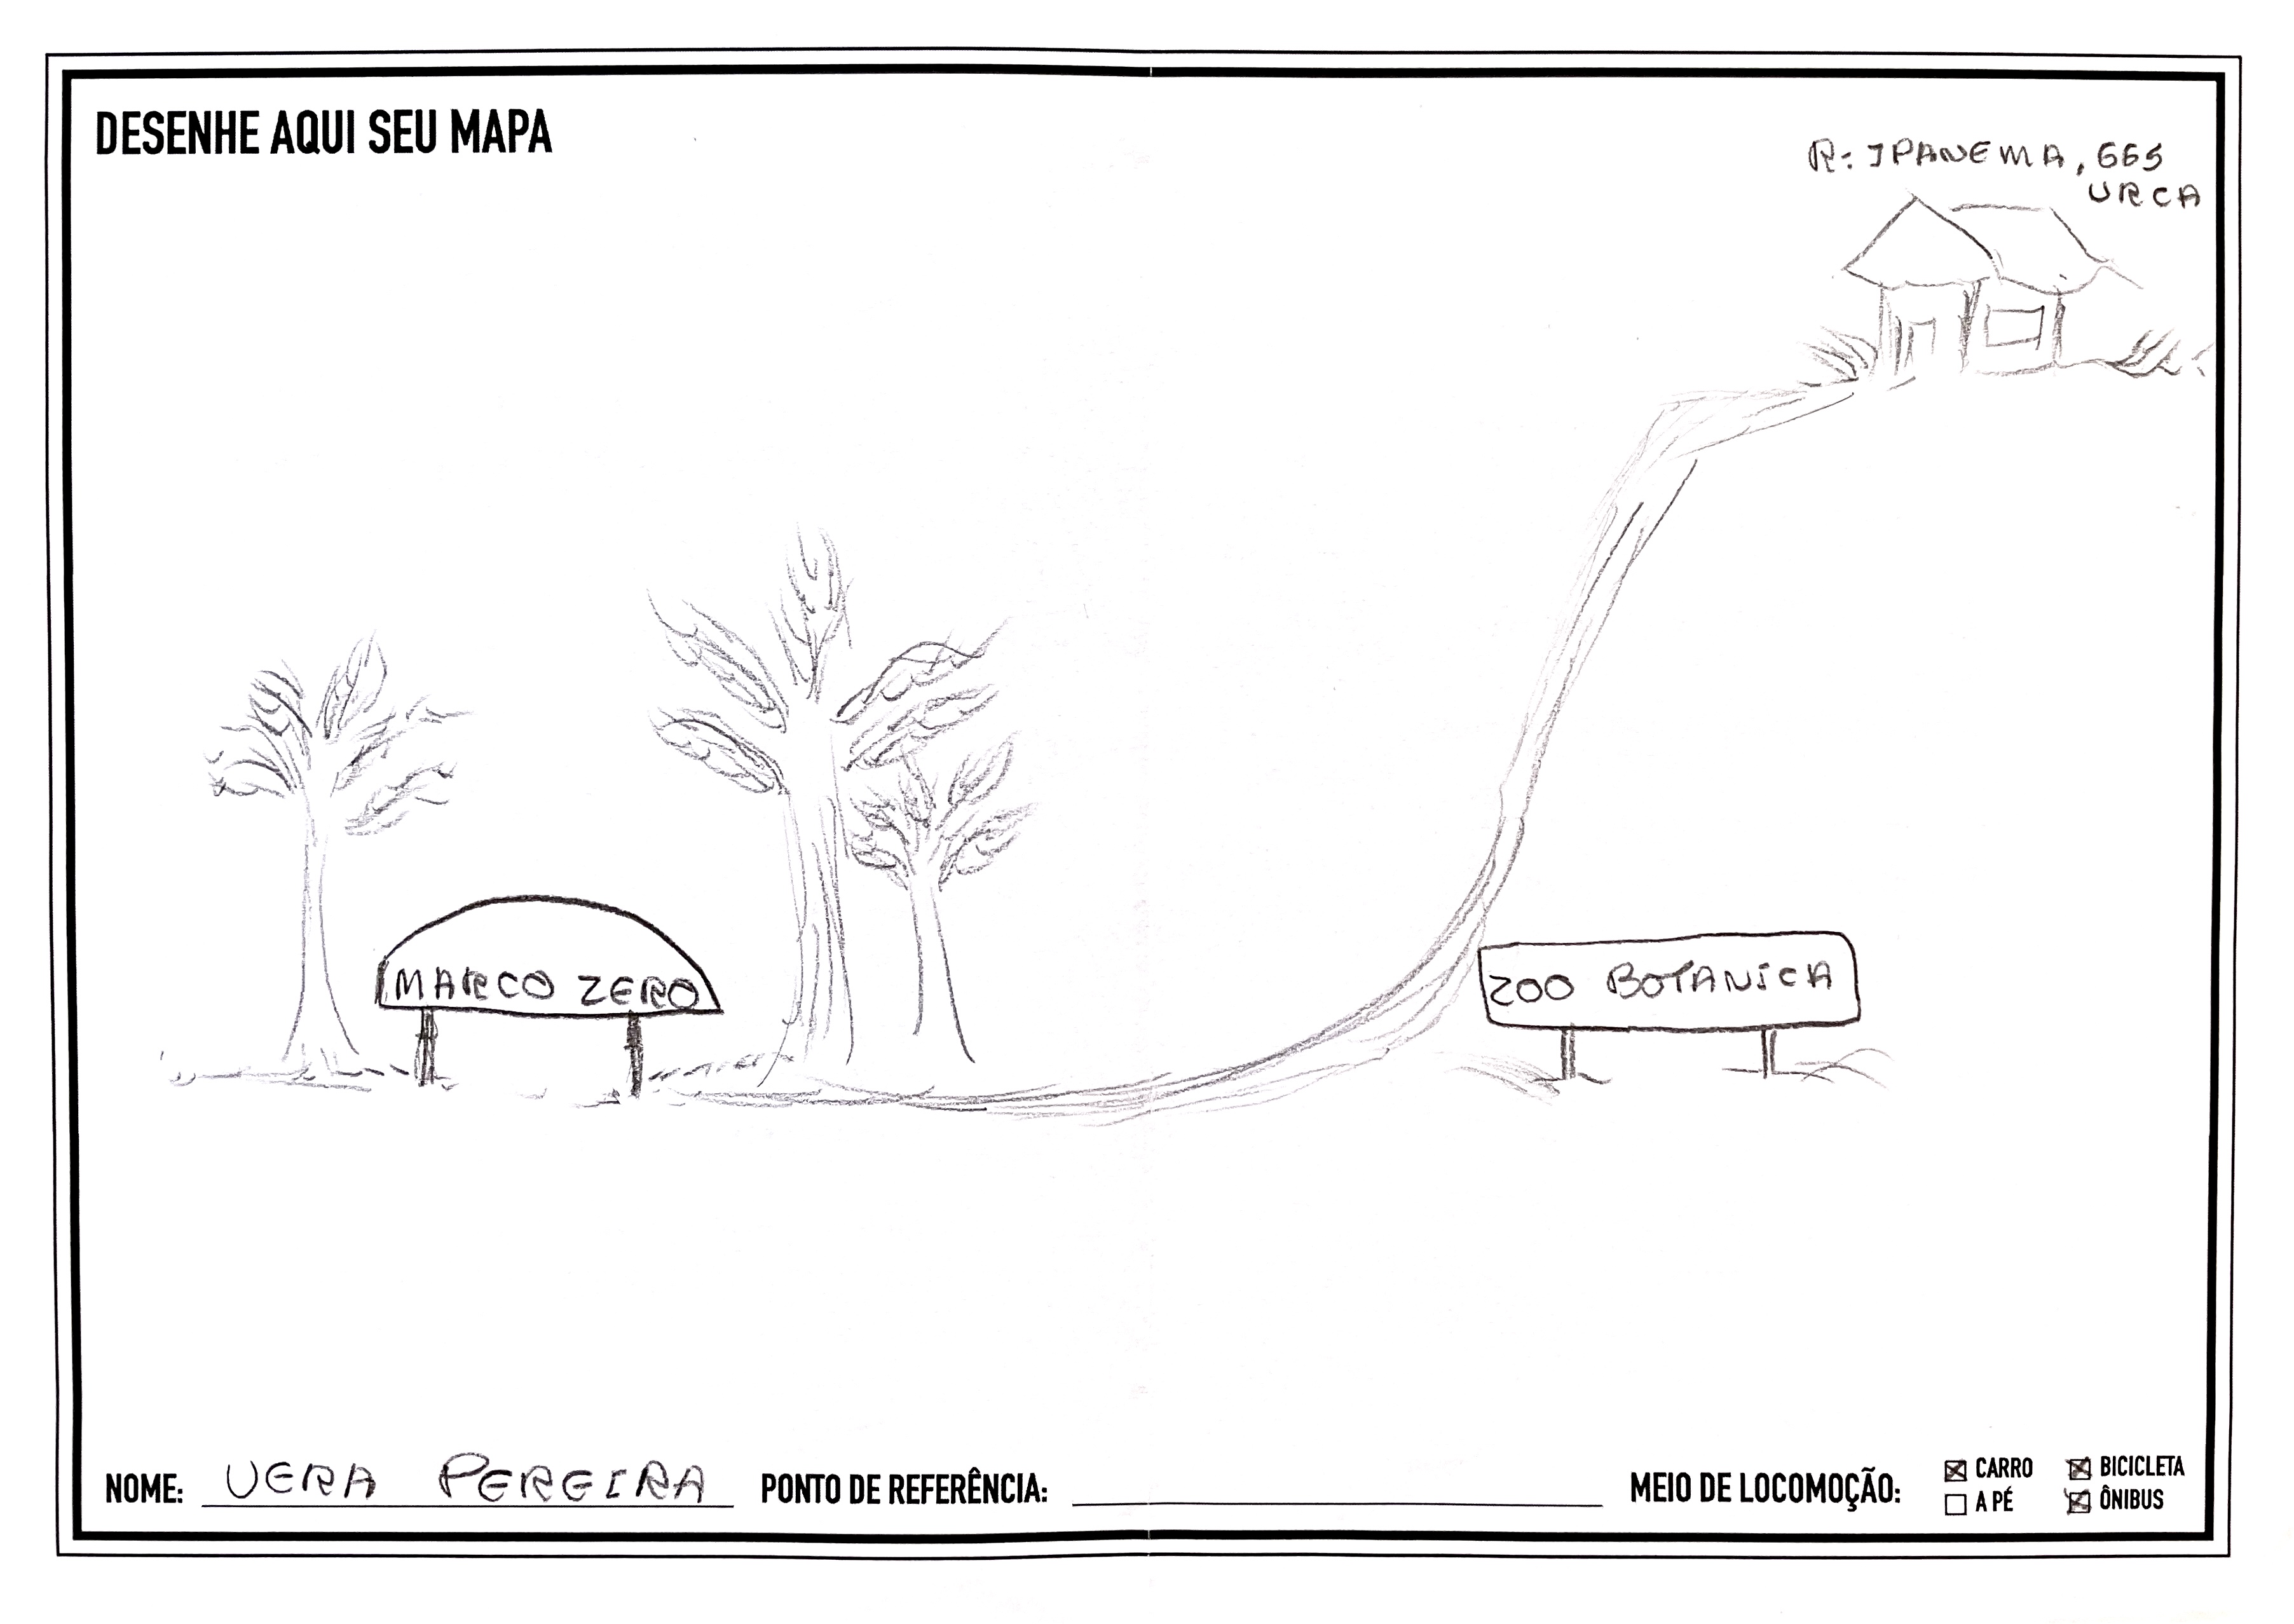 DESENHE AQUI SEU MAPA
R: IPANEMA, 665
URCA
MARCO ZERO
ZOO BOTANICA
NOME: VERA PEREIRA PONTO DE REFERÊNCIA: MEIO DE LOCOMOÇÃO:
CARRO BICICLETA
A PÉ ÔNIBUS